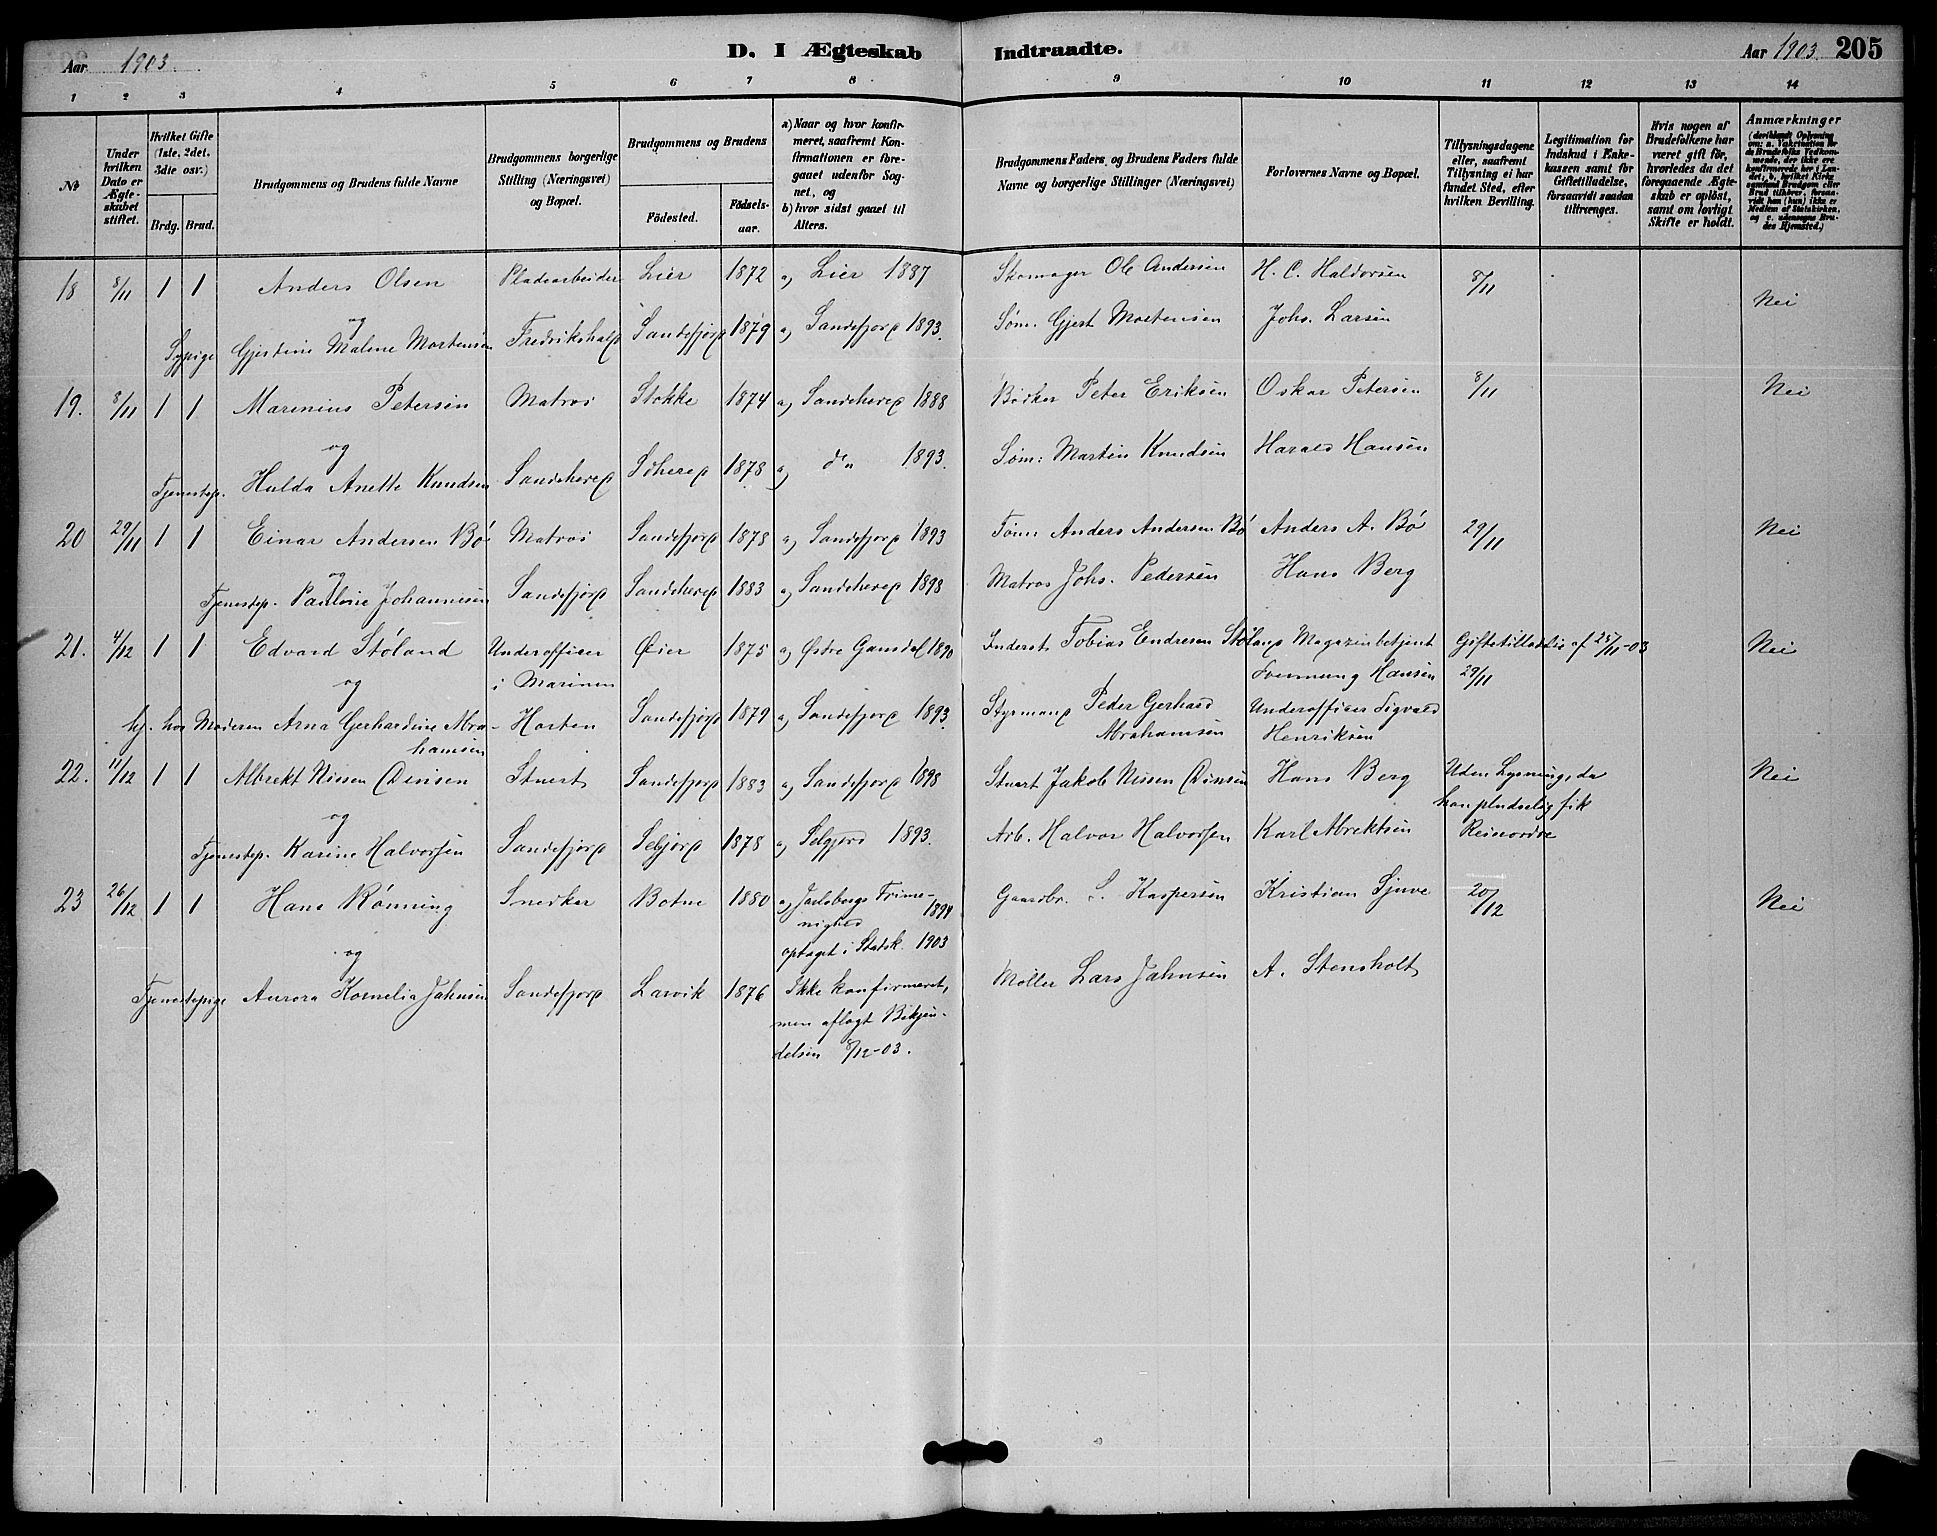 Aar 1903. D. I Ægteskab Indtraadte. Aar 1903. 205
1 2 3 4 5 6 7 8 9 10 11 12 13 14
№
Under hvilken Dato er Ægteskabet stiftet.
Hvilket Gifte (1ste, 2det, 3die osv.)
Brdg. Brud.
Brudgommens og Brudens fulde Navne
Brudgommens borgerlige Stilling (Næringsvei) og Bopæl.
Brudgommens og Brudens
Födested. Födselsaar.
a) Naar og hvor konfirmeret, saafremt Konfirmationen er foregaaet udenfor Sognet, og
b) hvor sidst gaaet til Alters.
Brudgommens Faders, og Brudens Faders fulde Navne og borgerlige Stillinger (Næringsvei)
Forlovernes Navne og Bopæl.
Tillysningsdagene eller, saafremt Tillysning ei har fundet Sted, efter hvilken Bevilling.
Legitimation for Indskud i Enkekassen samt for Giftetilladelse, forsaavidt saadan tiltrænges.
Hvis nogen af Brudefolkene har været gift för, hvorledes da det foregaaende Ægteskab er oplöst, samt om lovligt Skifte er holdt.
Anmærkninger
(deriblandt Oplysning om: a. Vakcination for de Brudefolks Vedkommende, der ikke ere konfirmerede her i Landet; b. hvilket Kirkesamfund Brudgom eller Brud tilhörer, forsaavidt han (hun) ikke er Medlem af Statskirken, og c. udensogns Brudes Hjemsted.)
18 8/11 1 1 Anders Olsen Pladearbeider Lier 1872 a) Lier 1887 Skomager Ole Andersen H. C. Haldorsen 8/11 Nei
og
Sypige Gjestine Malene Mortensen Fredrikshald Sandefjord 1879 a) Sandefjord 1893. Søm. Gjert Mortensen Johs. Larsen
19. 8/11 1 1 Marinius Petersen Matros Stokke 1874 a) Sandeherred 1888 Bødker Peter Eriksen Oskar Petersen 8/11 Nei
og
Tjenestep. Hulda Anette Knudsen Sandeherred Sdherred 1878 a) do 1893. Søm: Martin Knudsen Harald Hansen
20 29/11 1 1 Einar Andersen Bø Matros Sandefjord 1878 a) Sandefjord 1893 Tømr Anders Andersen Bø Anders A. Bø 29/11 Nei
og
Tjenestep. Pauline Johannesen Sandefjord Sandeherred 1883 a) Sandeherred 1898 Matros Johs. Pedersen Hans Berg
21. 4/12 1 1 Edvard Støland Underofficer Øier 1875 a) Østre Gausdal 1890 Inderst Tobias Endresen Støland Magazinbetjent Giftetilladelse af 25/11-03 Nei
og i Marinen Hansen 29/11
hj. hos Moderen Arna Gerhardine Abra- Horten Sandefjord 1879 a) Sandefjord 1893. Styrmand Peder Gerhard Underofficer Sigvald
hamsen Abrahamsen Henriksen
22. 11/12 1 1 Albrekt Nissen Dinsen Stuert Sandefjord 1883 a) Sandefjord 1898 Stuert Jakob Nissen Dinsen Hans Berg Uden Lysning, da Nei
og han pludselig fik
Tjenestep. Karine Halvorsen Sandefjord Seljord 1878 a) Selgjord 1893. Arb. Halvor Halvorsen Karl Albrektsen Reiseordre
23 26/12 1 1 Hans Rønning Snedker Botne 1880 a) Jarlsbergs Frime- 1894 Gaardbr. L. Kaspersen Kristian Sjuve 20/12 Nei
nighed
og optaget i Statsk. 1903
Tjenestepige Aurora Kornelia Jahnsen Sandefjord Larvik 1876 Ikke konfirmeret, Møller Lars Jahnsen A. Stensholt
men aflagt Bekjen-
delsen 8/12-03.